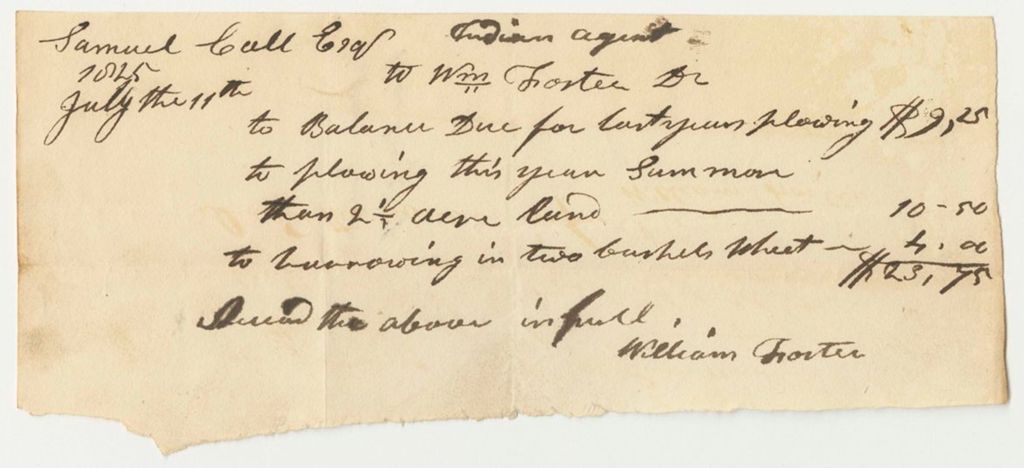 Samuel Call Esqr Indian agent
1825
July the 11th to Wm Foster Dr
to Balance Due for last years plowing $9,25
to plowing this year Sum more
than 2 1/2 acre land 10-50
to harrowing in two bushels Wheat 4.00
$23,75
Received the above in full,
William Foster